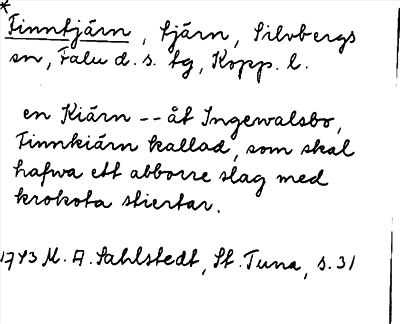 * Finntjärn, tjärn, Silvbergs
sn, Falu d. s. tg, Kopp. l.
en Kiärn -- åt Ingewalsbo,
Finnkiärn kallad, som skal
hafwa ett abborre slag med
krokota stiertar.
1743 M. A. Sahlstedt, St. Tuna, s. 31